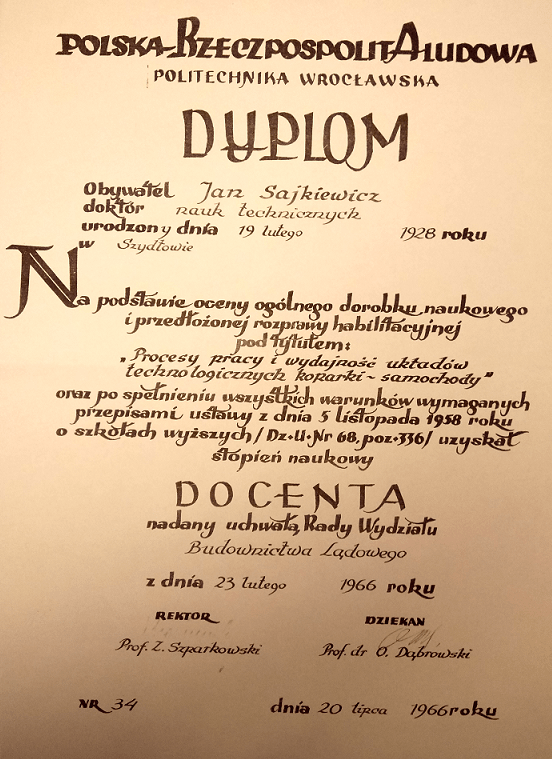 POLSKA RZECZPOSPOLITA LUDOWA
POLITECHNIKA WROCŁAWSKA
DYPLOM
Obywatel Jan Sajkiewicz
doktór nauk technicznych
urodzony dnia 19 lutego 1928 roku
w Szydłowie
Na podstawie oceny ogólnego dorobku naukowego
i przedłożonej rozprawy habilitacyjnej
pod tytułem:
„Procesy pracy i wydajność układów
technologicznych koparki - samochody"
oraz po spełnieniu wszystkich warunków wymaganych
przepisami ustawy z dnia 5 listopada 1958 roku
o szkołach wyższych /Dz.U.Nr 68, poz.336/ uzyskał
stopień naukowy
DOCENTA
nadany uchwałą Rady Wydziału
Budownictwa Lądowego
z dnia 23 lutego 1966 roku
REKTOR DZIEKAN
Prof. Z. Szparkowski Prof. dr O. Dąbrowski
NR 34 dnia 20 lipca 1966 roku